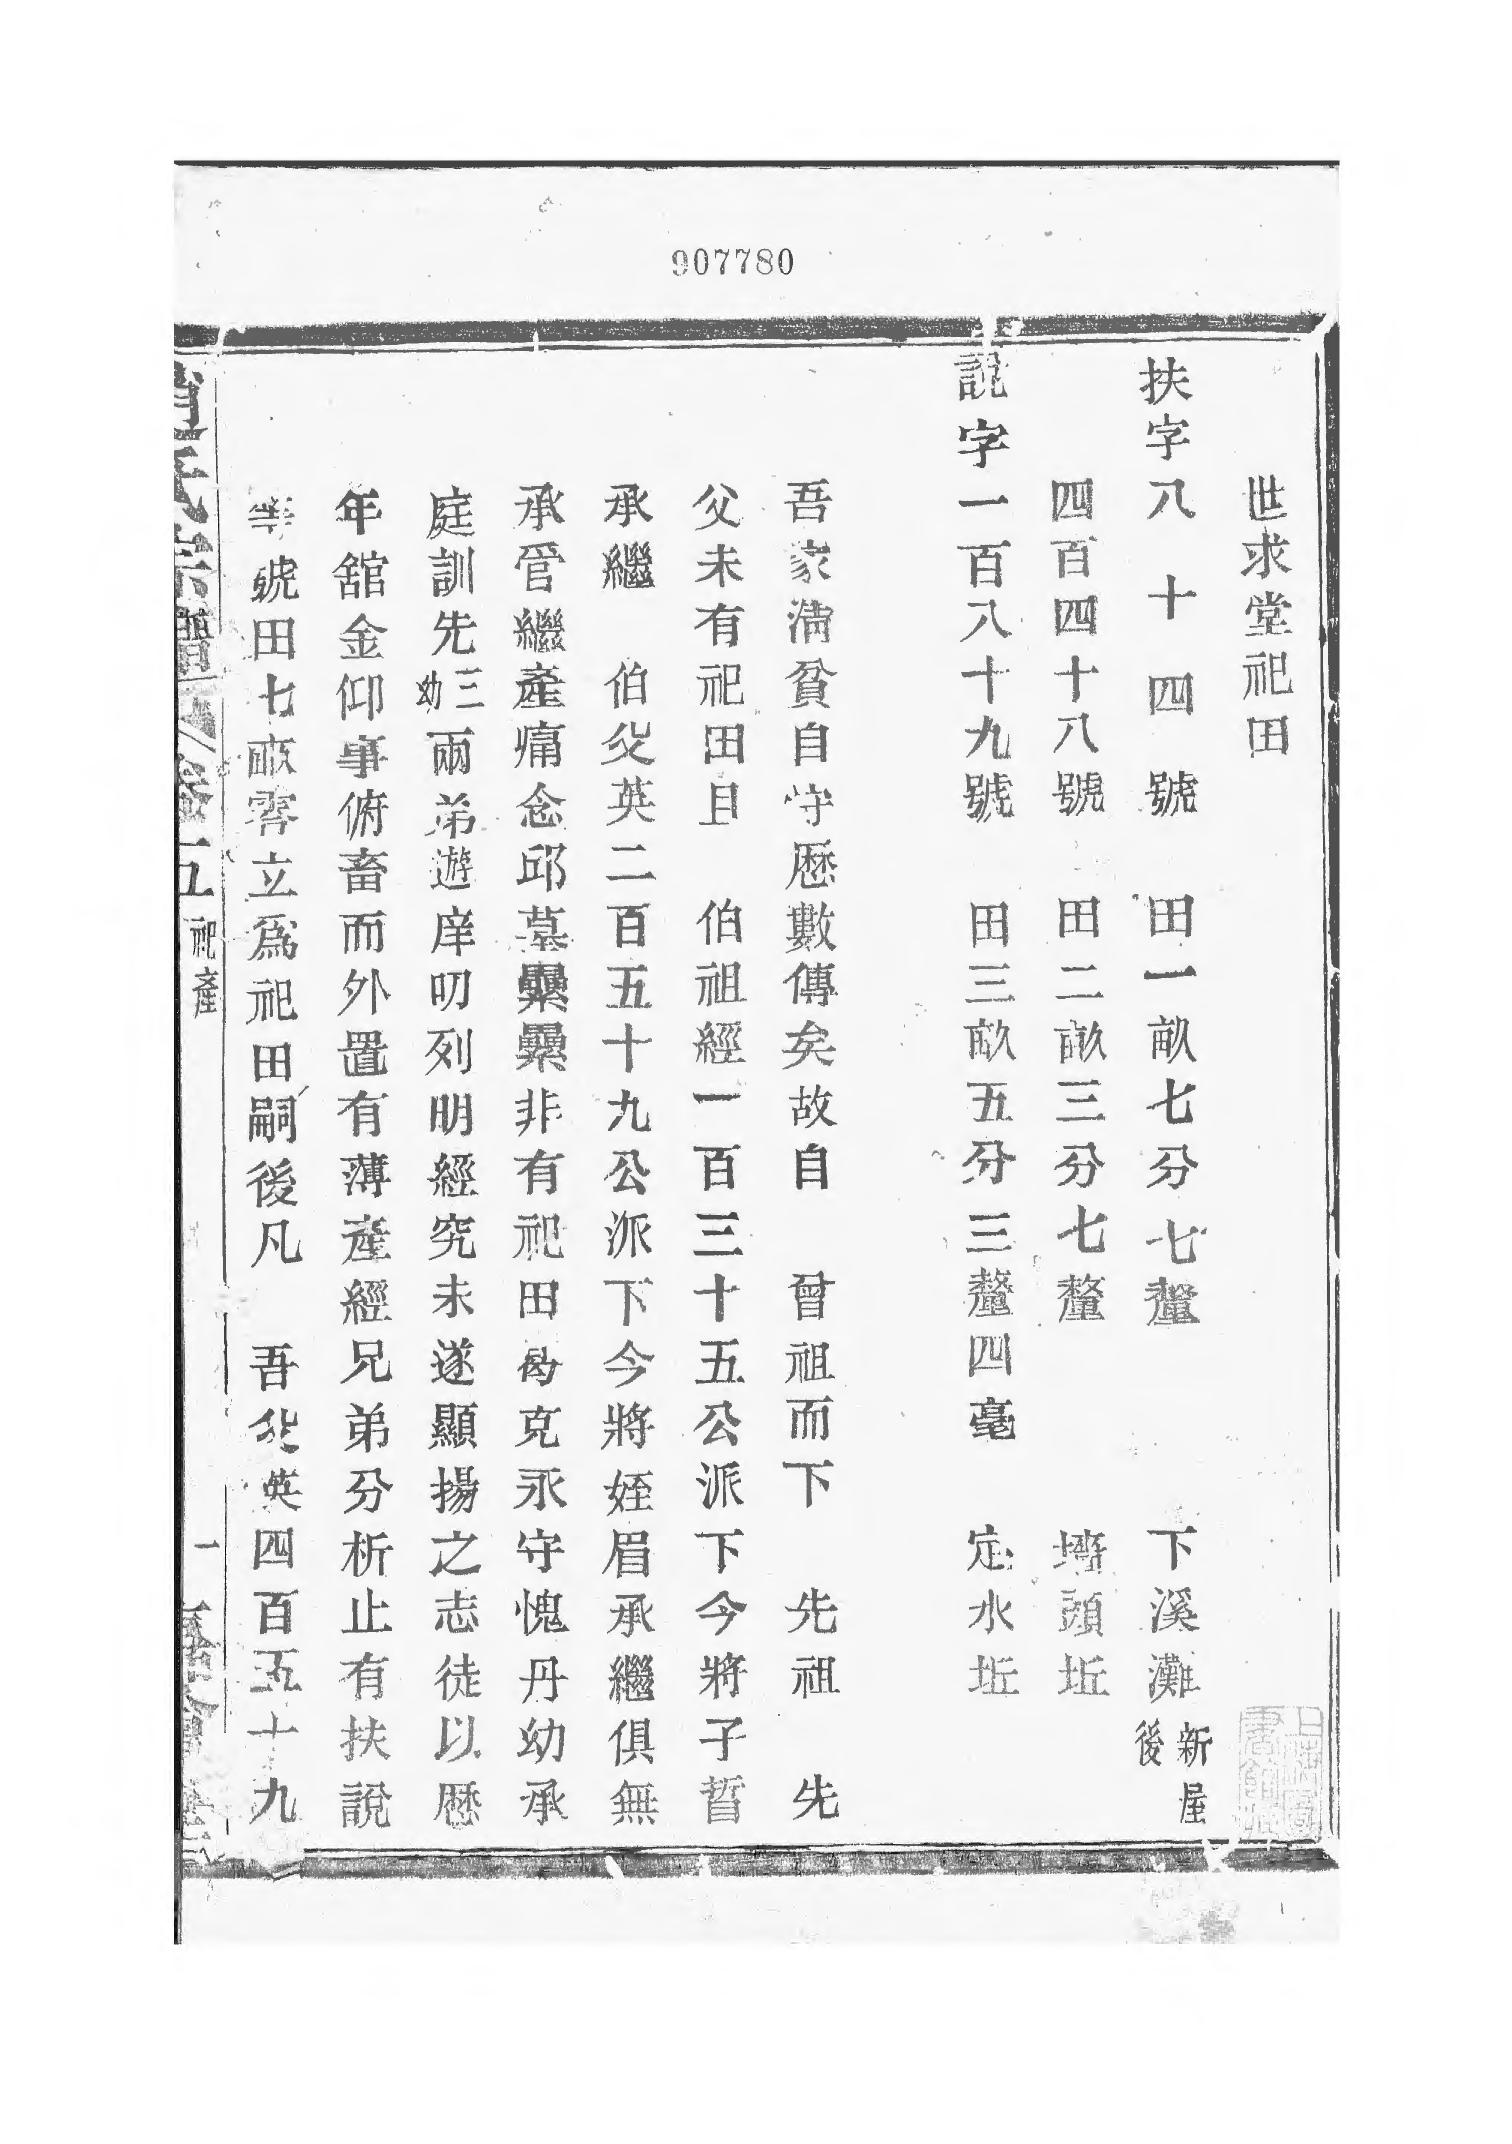 907780
世求堂祀田
扶字八十四號 田一畝七分七釐 下溪灘新屋後
四百四十八號 田二畝三分七釐 頭坵
說字一百八十九號 田三畝五分三釐四毫 定水坵
吾家淸貧自守歷數傳矣故自 曾祖而下 先祖 先
父未有祀田且 伯祖經一百三十五公派下今將子晢
承繼 伯父英二百五十九公派下今將姪眉承繼俱無
承管繼產痛念邱墓纍纍非有祀田曷克永守愧丹幼承
庭訓先三幼兩弟遊庠叨列明經究未遂顯揚之志徒以歷
年舘金仰事俯畜而外置有薄產經兄弟分析止有扶說
等號田七畝零立爲祀田嗣後凡 吾父英四百五十九
趙氏宗譜 卷五 祀產 一